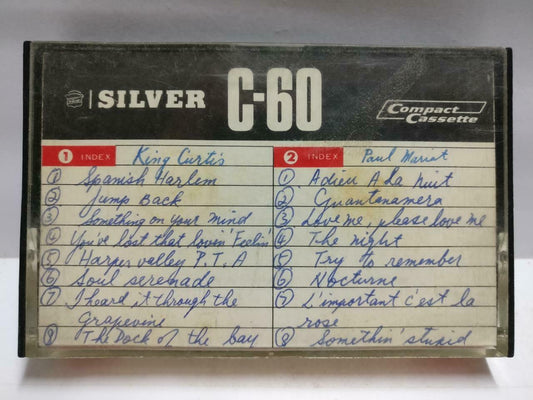 SILVER C-60 Compact Cassette
1 INDEX King Curtis
① Spanish Harlem
② Jump Back
③ Something on your mind
④ You've lost that lovin' Feelin'
⑤ Harper valley P.T.A
⑥ Soul serenade
⑦ I heard it through the
Grapevine
⑧ The Dock of the bay
2 INDEX Paul Mariat
① Adieu A La nuit
② Guantanamera
③ Love me, please love me
④ The night
⑤ Try to remember
⑥ Nocturne
⑦ L'important c'est la
rose
⑧ Somethin' stupid